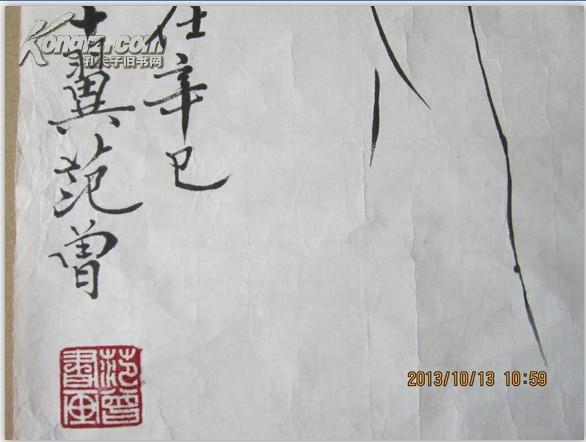 岁在辛巳
十翼范曾
范曾書畫
Kongfz.com
孔夫子旧书网
2013/10/13 10:59